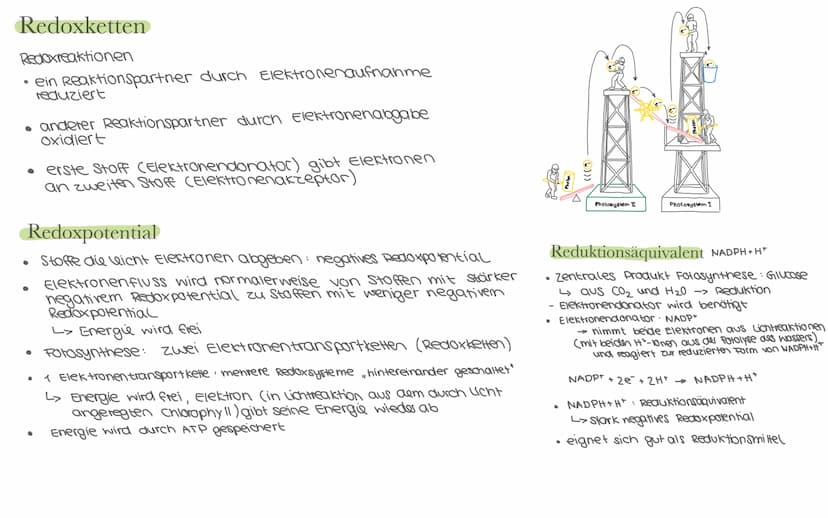 Redoxketten
Redoxreaktionen
• ein Reaktionspartner durch Elektronenaufnahme
reduziert
• anderer Reaktionspartner durch Elektronenabgabe
oxidiert
• erste Stoff (Elektronendonator) gibt Elektronen
an zweiten Stoff (Elektronenakzeptor)
Redoxpotential
• Stoffe die leicht Elektronen abgeben: negatives Redoxpotential
• Elektronenfluss wird normalerweise von Stoffen mit stärker
negativem Redoxpotential zu Stoffen mit weniger negativem
Redoxpotential
↳ Energie wird frei
• Fotosynthese: zwei Elektronentransportketten (Redoxketten)
• 1 Elektronentransportkette: mehrere Redoxsysteme „hintereinander geschaltet"
↳ Energie wird frei, Elektron (in Lichtreaktion aus dem durch Licht
angeregten Chlorophyll) gibt seine Energie wieder ab
• Energie wird durch ATP gespeichert
Photosystem II
Photosystem I
Reduktionsäquivalent NADPH+H⁺
• Zentrales Produkt Fotosynthese: Glucose
↳ aus CO₂ und H₂O → Reduktion
- Elektronendonator wird benötigt
• Elektronendonator: NADP⁺
→ nimmt beide Elektronen aus Lichtreaktionen
(mit beiden H⁺-Ionen aus der Fotolyse des Wassers)
und reagiert zur reduzierten Form von NADPH+H⁺
NADP⁺ + 2e⁻ + 2H⁺ → NADPH+H⁺
• NADPH+H⁺: Reduktionsäquivalent
↳ stark negatives Redoxpotential
• eignet sich gut als Reduktionsmittel